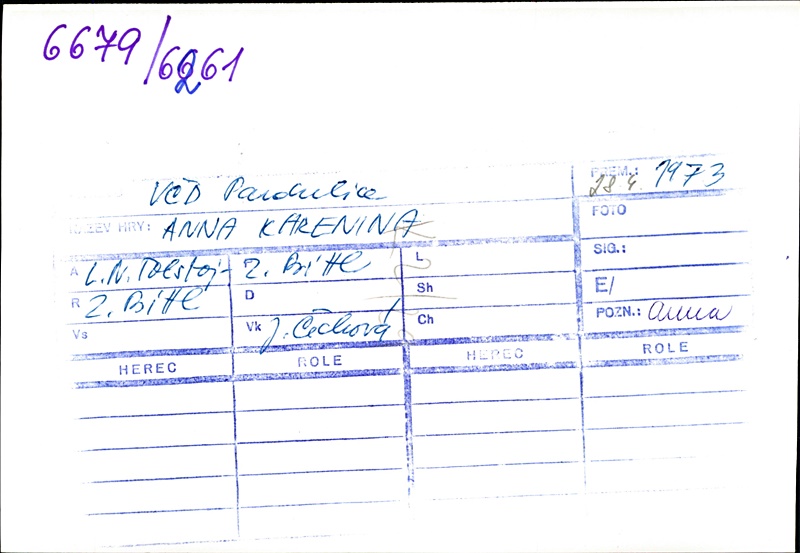 6679/6261
VČD Pardubice
PREM.: 28 4. 1973
NÁZEV HRY: ANNA KARENINA
FOTO
A L.N. Tolstoj - Z. Bittl
L
SIG.:
R Z. Bittl
D
Sh
E/
Vs
Vk J. Čechová
Ch
POZN.: Anna
HEREC ROLE HEREC ROLE